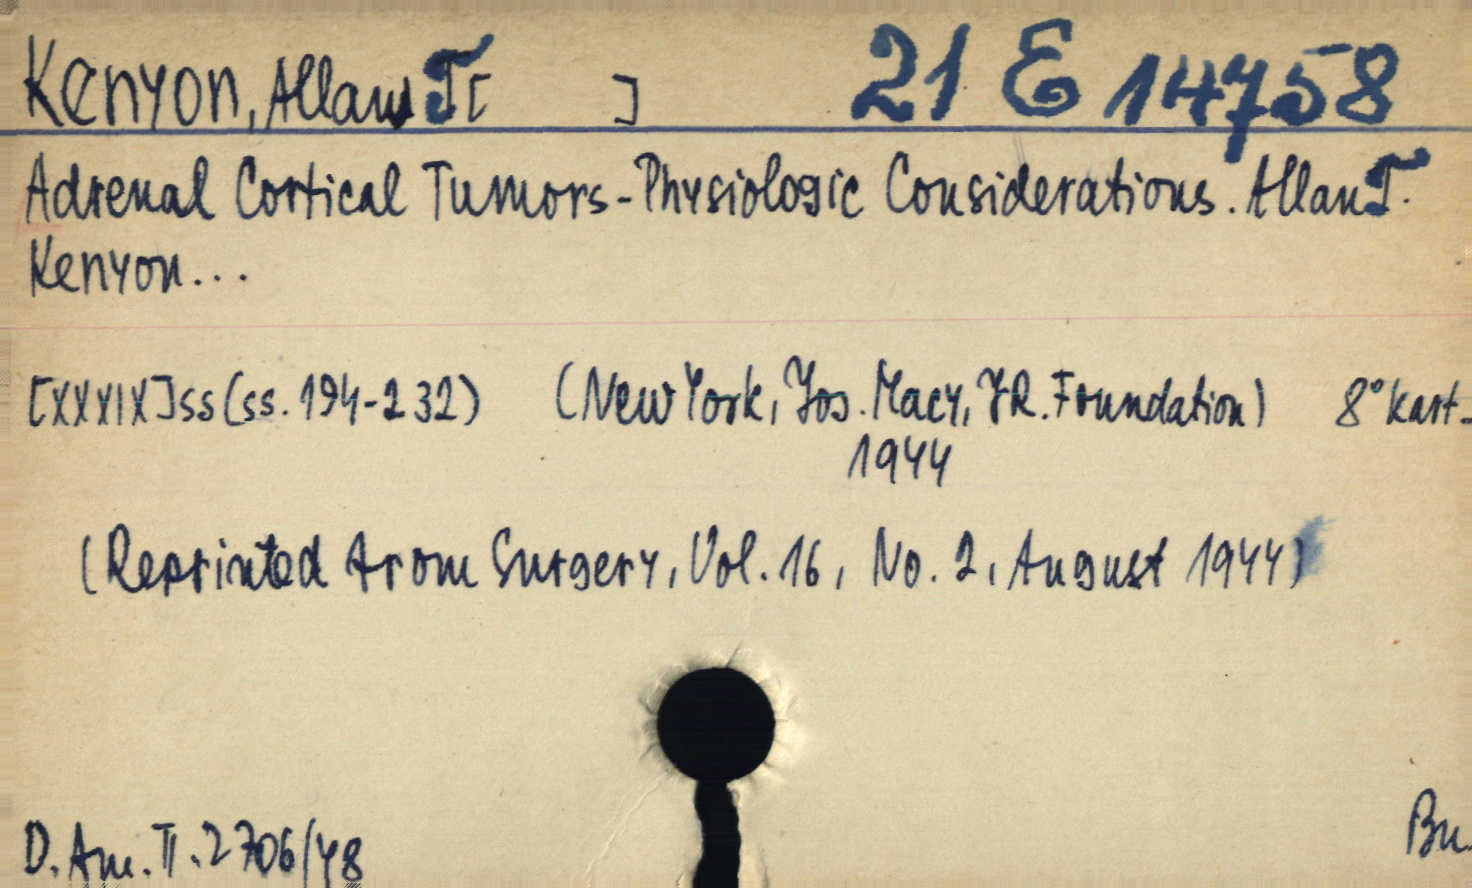 Kenyon, Allan T[ ] 21 E 14758
Adrenal Cortical Tumors-Physiologic Considerations. Allan T.
Kenyon...
[XXXIX]ss(ss. 194-232) (New York, Jos. Macy, JR. Foundation) 8° kart.
1944
(Reprinted from Surgery, Vol. 16, No. 2, August 1944)
D. Am. II. 2706/48 Bn.